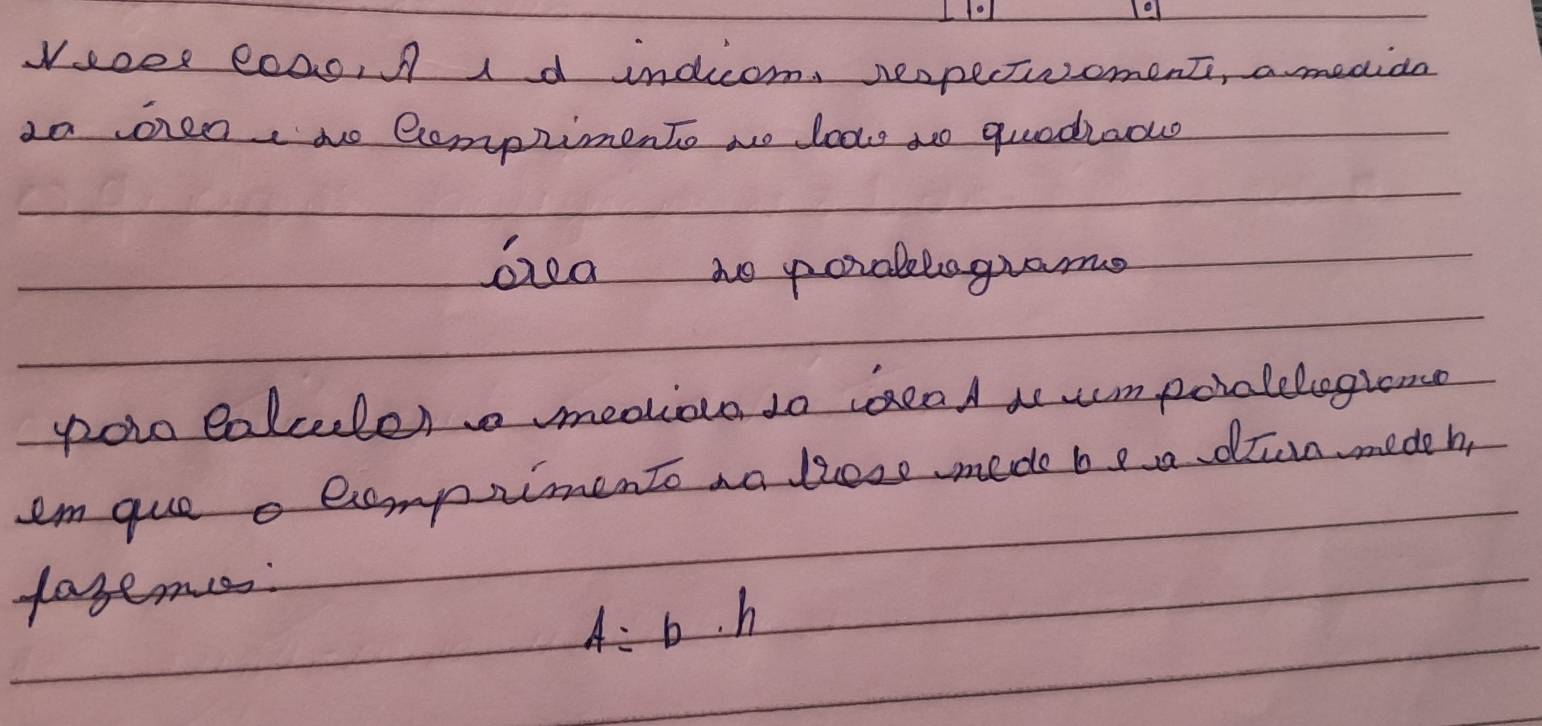 Nesse caso, A e d indicam, respectivamente, a medida
da área e do comprimento do lado do quadrado
área do paralelogramo
para calcular a medida da área A de um paralelogramo
em que o comprimento da base mede b e a altura mede h,
fazemos:
A = b . h